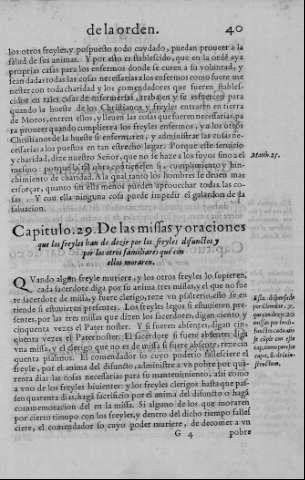 de la orden. 40
los otros freyles, y pospuesto todo cuydado, puedan proueer a la
salud de sus animas. Y por esto es establescido, que en la orde aya
proprias casas para los enfermos donde se curen a su voluntad, y
sean dadas todas las cosas necessarias a los enfermos como fuere me
nester con toda charidad y los comendadores que fueren estables-
cidos en tales casas de enfermerias, trabajen y se esfuercen para
quando la hueste de los Christianos y freyles entraren en tierra
de Moros, entren ellos, y lleuen las cosas que fueren necessarias, pa
ra proueer quando cumpliere a los freyles enfermos, y a los otros
Christianos de la hueste si enfermaren, y administrar les cosas ne-
cessarias a los puestos en tan estrecho lugar: Porque este seruicio
y charidad, dize nuestro Señor, que no se haze a los suyos sino el
mesmo: porque tal obra como esta es cumplimiento y hin-
chimiento de charidad. A la qual tanto los hombres se deuen mas
esforçar, quanto sin ella menos pueden aprouechar todas las co-
sas. Y con ella ninguna cosa puede impedir el galardon de la
saluacion.
Matth. 25.
Capitulo. 29. De las missas y oraciones
que los freyles han de dezir por los freyles difunctos, y
por los otros familiares que con
ellos moraren.
QVando algun freyle muriere, y los otros freyles lo supieren,
cada sacerdote diga por su anima tres missas, y el que no fue
re sacerdote de missa, y fuere clerigo, reze vn psalterio,
si estuuieren presentes. Los freyles legos si estuuieren pre-
sentes, por las tres missas que dizen los sacerdotes, digan ciento y
cinquenta vezes el Pater noster. Y si fueren absentes, digan cin-
cuenta vezes el Pater noster. El sacerdote si fuere absente diga
vna missa, y el clerigo que no es de missa si fuere absente, reze cin
quenta psalmos. El comendador so cuyo poderio falleciere el
freyle, por el anima del difuncto, administre a vn pobre por qua
renta dias las cosas necessarias para su mantenimiento, assi como
a vno de los freyles biuientes: y los freyles clerigos hasta que pas-
sen quarenta dias, haga sacrificio por el anima del difuncto o haga
commemoracion del en la missa. Si alguno de los que moraren
por cierto tiempo con los freyles, y dentro del dicho tiempo falles
ciere, el comendador so cuyo poder muriere, de de comer a vn
G 4 pobre